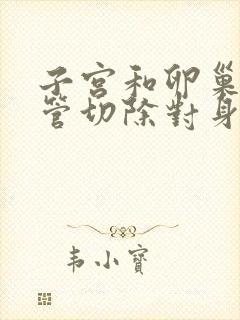 子宮和卵巢
管切除對身
韦小寶